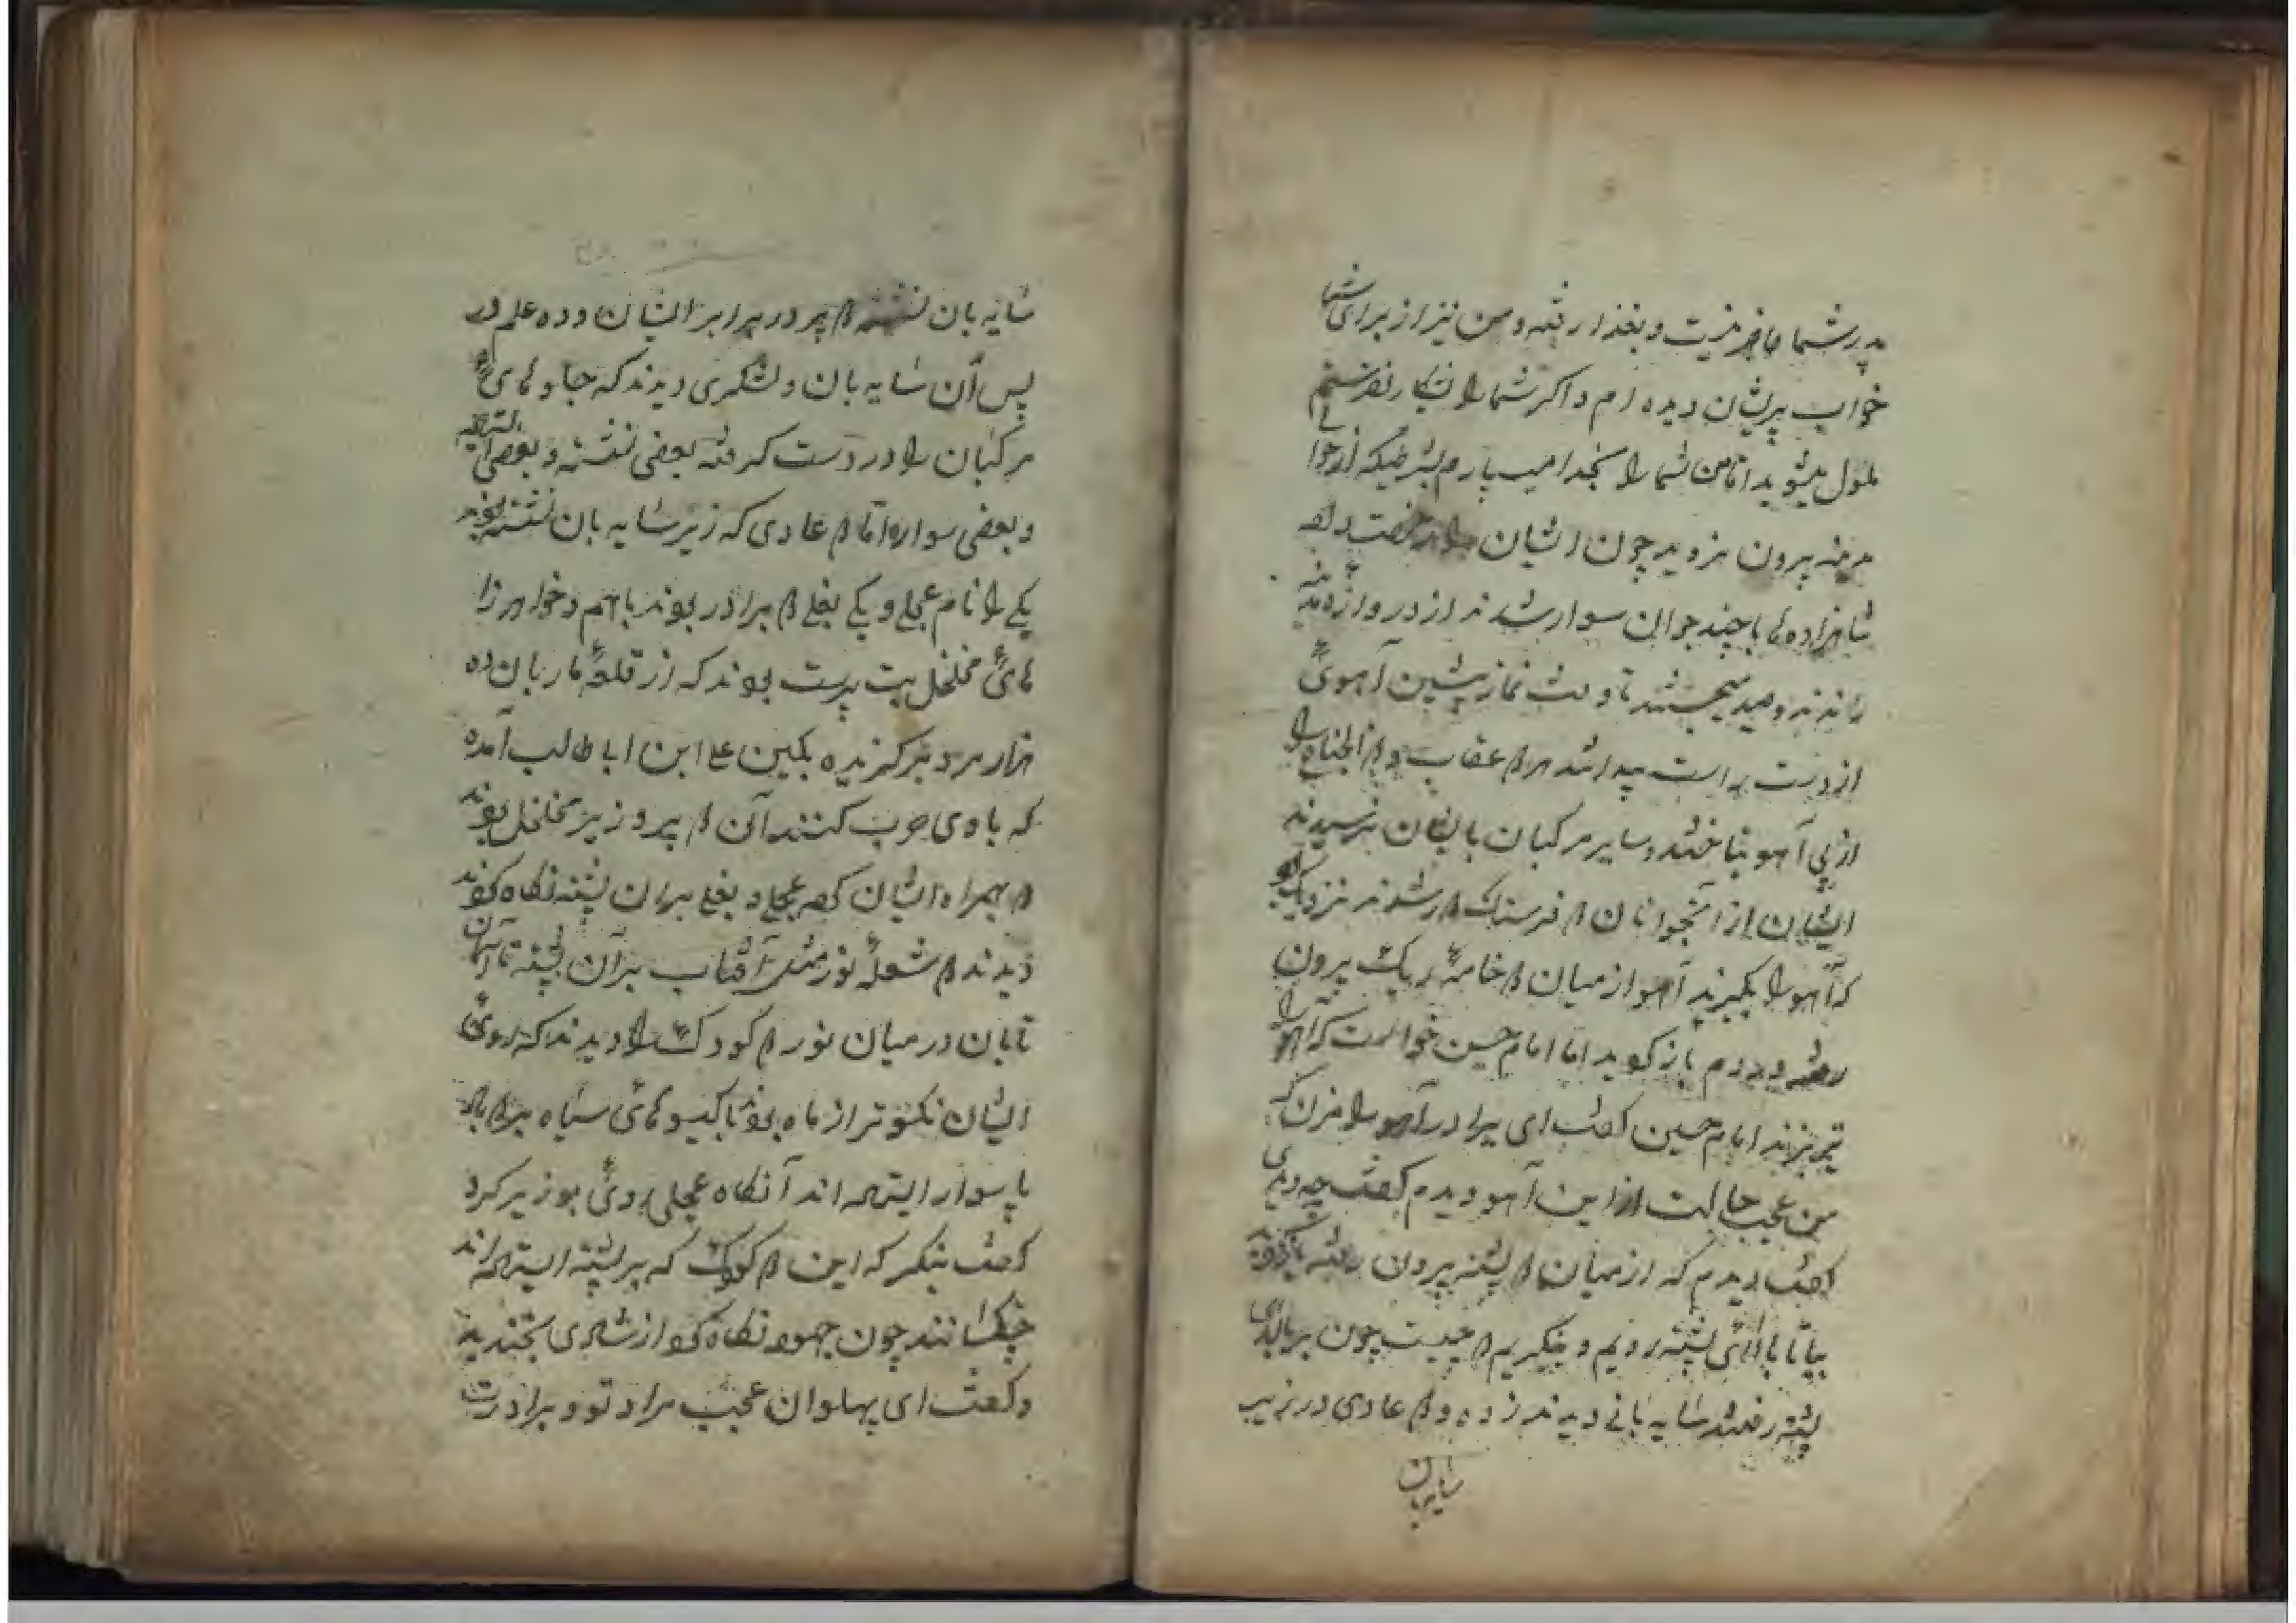 پدر شما حاضر نیست و بغذا رفته و من نیز از برای شما
خواب پریشان دیده ام و اگر شما را بشکار نفرستم
ملول میشوید اما من شما را بخدا میسپارم بشرطیکه از حوا
مدینه بیرون نروید چون ایشان را رخصت داد
شاهزاده ها با چند جوان سوار شدند از دروازه مدینه
راندند و صید میجستند تا وقت نماز پیشین آهوئی
از دست راست پیدا شد هر دو عقاب و ذوالجناح را
از پی آهو بتاختند و سایر مرکبان بایشان نرسیدند
ایشان از آنجوانان دو فرسنگ دور شدند نزدیک بود
که آهو را بگیرند آهو از میان دو خامه ریک بیرون
رفت دیدم باز گوید اما امام حسن خواست که آهو را
تیر بزند امام حسین گفت ای برادر آهو را مزن که
من عجب حالت از این آهو دیدم گفت چه دیدی
گفت دیدم که از میان دو پشته بیرون رفت
بیا تا ببالای پشته رویم و بنگریم که چیست چون بر بالای
پشته رفتند سایه بانی دیدند زده و دو عادی در زیر
سایه بان
سایه بان نشسته دو پیر در برابر ایشان و ده علم در
پس آن سایه بان و لشکری دیدند که جلوهای
مرکبان را در دست گرفته بعضی نشسته و بعضی ایستاده
و بعضی سواره اما دو عادی که زیر سایه بان نشسته بودند
یکی را نام عجلی و یکی بغلی دو برادر بودند با هم و خواهرزا
های مخلخل بت پرست بودند که از قلعه ماربان ده
هزار مرد برگزیده بکین علی ابن ابا طالب آمده
که با وی حرب کنند آن دو پیر وزیر مخلخل بودند
همراه ایشان که عجلی و بغلی بر آن پشته نگاه کردند
دیدند دو شعله نور مثل آفتاب بر آن پشته تا آسمان
تابان در میان نور دو کودک را دیدند که روی
ایشان نکوتر از ماه بود با گیسوهای سیاه بر دو
پا سوار ایستاده اند آنگاه عجلی روی بوزیر کرد
گفت بنگر که این دو کودک که بر پشته ایستاده اند
چه کسانند چون جهود نگاه کرد از شادی بخندید
و گفت ای پهلوان عجب مراد تو و برادرت